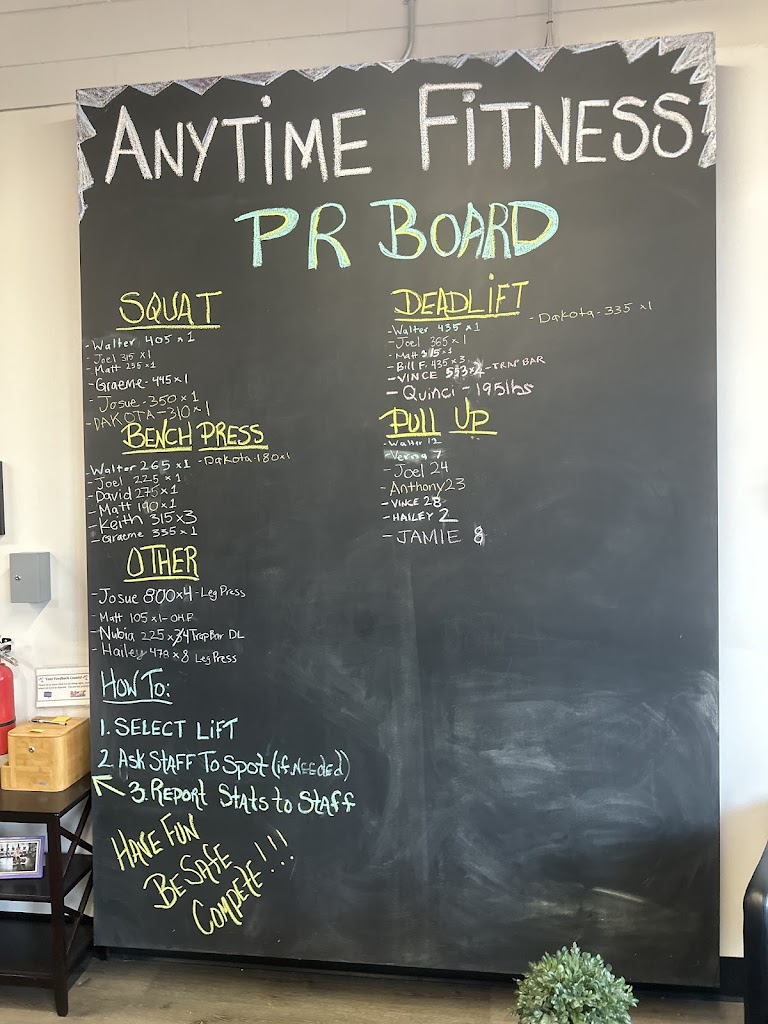 ANYTIME FITNESS
PR BOARD
SQUAT
- Walter 405 x 1
- Joel 315 x 1
- Matt 255 x 1
- Graeme - 445 x 1
- Josue - 350 x 1
- DAKOTA - 310 x 1
BENCH PRESS
- Walter 265 x 1 - Dakota - 180 x 1
- Joel 225 x 1
- David 275 x 1
- Matt 190 x 1
- Keith 315 x 3
- Graeme 335 x 1
OTHER
- Josue 800 x 4 - Leg Press
- Matt 105 x 1 - OHP
- Nubia 225 x 4 Trap Bar DL
- Hailey 478 x 8 Leg Press
HOW TO:
1. SELECT LIFT
2. ASK STAFF TO SPOT (if NEEDED)
3. REPORT STATS to STAFF
HAVE FUN
BE SAFE
COMPETE!!!
DEADLIFT
- Walter 435 x 1 - Dakota - 335 x 1
- Joel 365 x 1
- Matt 315 x 1
- Bill F. 435 x 3
- VINCE 553 x 2 - TRAP BAR
- Quinci - 195lbs
PULL UP
- Walter 12
- Verna 7
- Joel 24
- Anthony 23
- VINCE 28
- HAILEY 2
- JAMIE 8